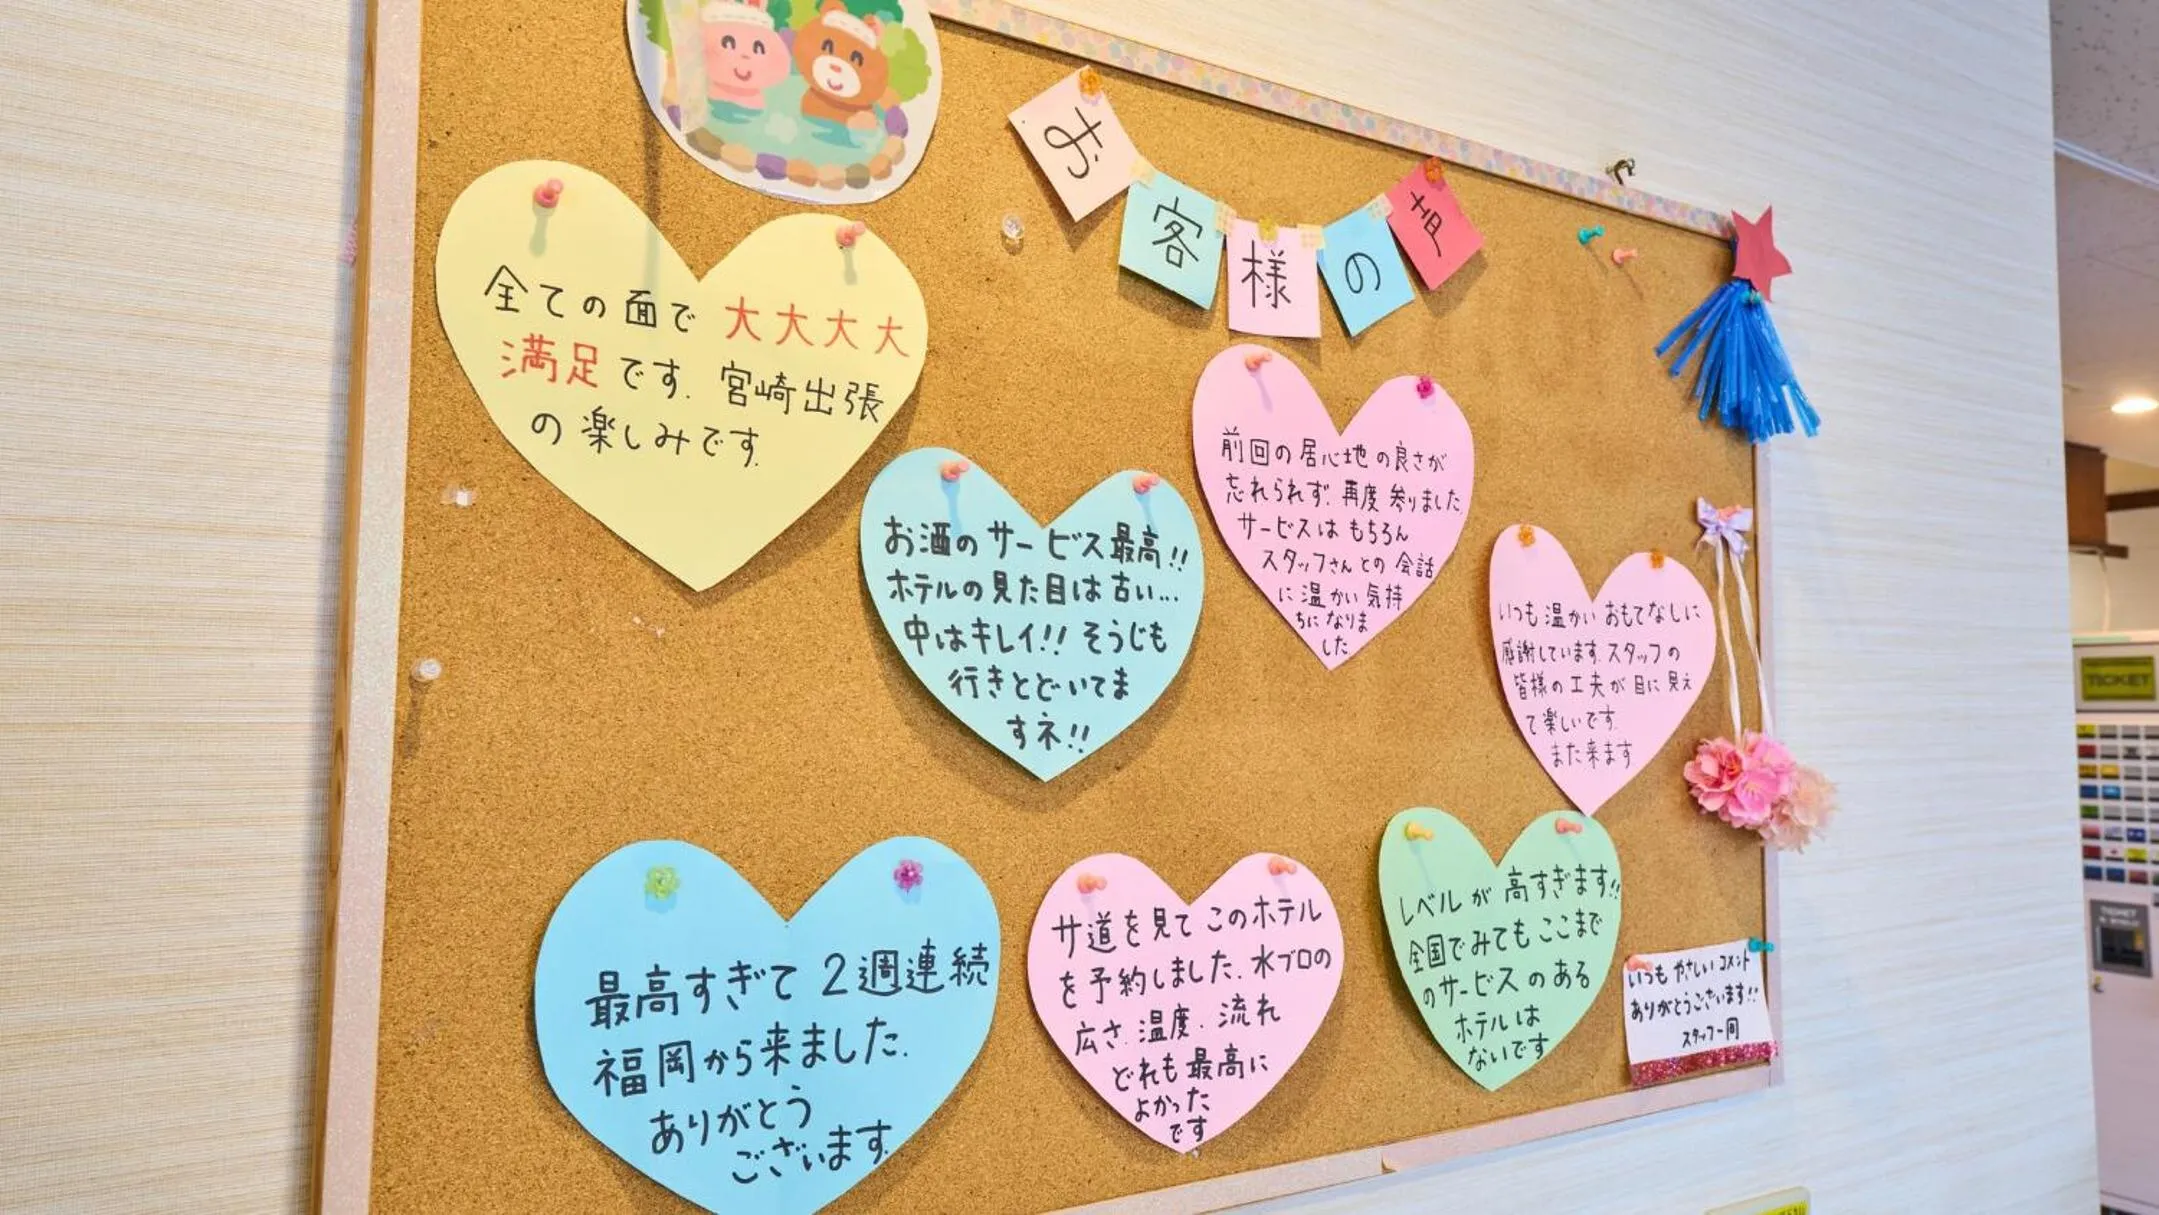 お客様の声
全ての面で大大大大
満足です。宮崎出張
の楽しみです。
お酒のサービス最高!!
ホテルの見た目は古い…
中はキレイ!! そうじも
行きとどいてま
すネ!!
前回の居心地の良さが
忘れられず、再度参りました
サービスはもちろん
スタッフさんとの会話
に温かい気持
ちになりま
した
いつも温かいおもてなしに
感謝しています。スタッフの
皆様の工夫が目に見え
て楽しいです。
また来ます
最高すぎて2週連続
福岡から来ました。
ありがとう
ございます。
サ道を見てこのホテル
を予約しました。水ブロの
広さ、温度、流れ
どれも最高に
よかった
です
レベルが高すぎます!!
全国でみてもここまで
のサービスのある
ホテルは
ないです
いつもやさしいコメント
ありがとうございます!!
スタッフ一同
TICKET